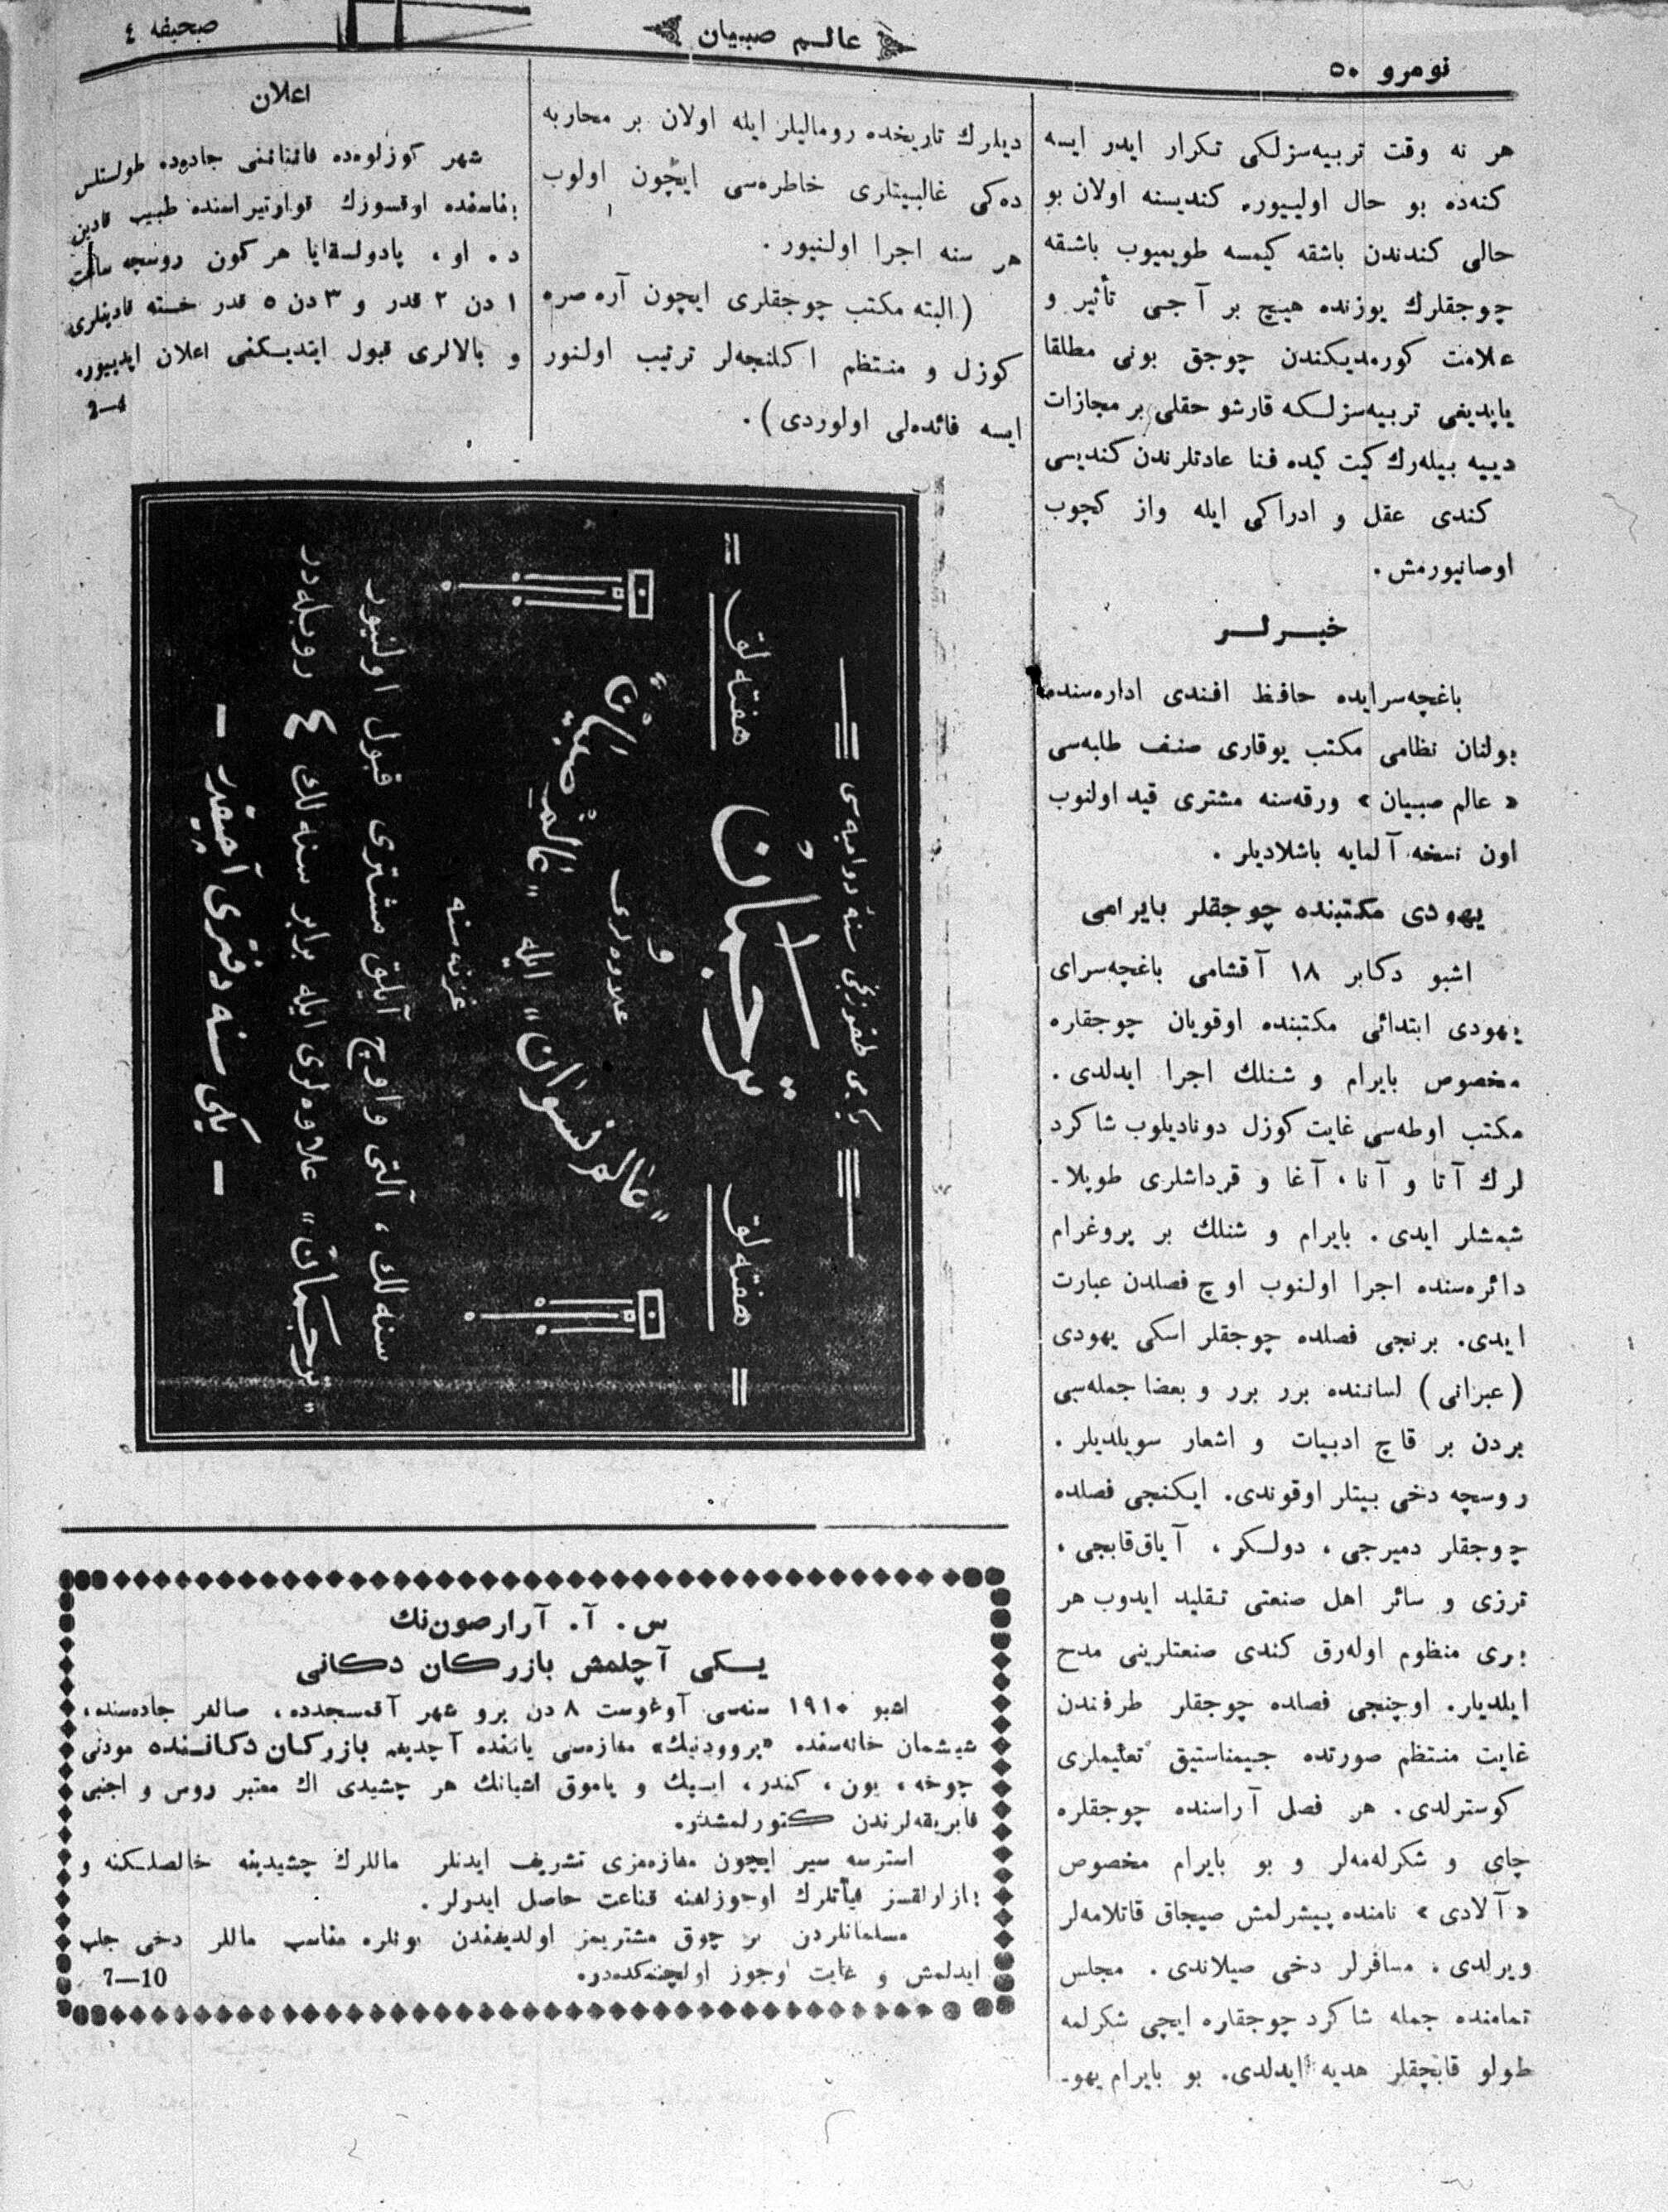 نومرو ٥٠
عالم صبيان
صحيفه ٤
هر نه وقت تربيه‌سزلكى تكرار ايدر ايسه
كنه‌ده بو حال اولييور. كنديسنه اولان بو
حالى كندندن باشقه كيمسه طويميوب باشقه
چوجقلرك يوزنده هيچ بر آجى تأثير و
علامت كورمديكندن چوجق بونى مطلقا
ياپديغى تربيه‌سزلكه قارشو حقلى بر مجازات
دييه بيله‌رك كيت كيده فنا عادتلرندن كنديسى
كندى عقل و ادراكى ايله واز كچوب
اوصانيورمش.
خبرلر
باغچه‌سرايده حافظ افندى اداره‌سنده
بولنان نظامى مكتب يوقارى صنف طلبه‌سى
« عالم صبيان » ورقه‌سنه مشترى قيد اولنوب
اون نسخه آلمايه باشلاديلر.
يهودى مكتبنده چوجقلر بايرامى
اشبو دكابر ١٨ آقشامى باغچه‌سراى
يهودى ابتدائى مكتبنده اوقويان چوجقاره
مخصوص بايرام و شنلك اجرا ايدلدى.
مكتب اوطه‌سى غايت كوزل دوناديلوب شاكرد
لرك آتا و آنا، آغا و قرداشلرى طوپلا-
شمشلر ايدى. بايرام و شنلك بر پروغرام
دائره‌سنده اجرا اولنوب اوچ فصلدن عبارت
ايدى. برنجى فصلده چوجقلر اسكى يهودى
(عبرانى) لساننده برر برر و بعضا جمله‌سى
بردن بر قاچ ادبيات و اشعار سويلديلر.
روسچه دخى بيتلر اوقوندى. ايكنجى فصلده
چوجقلر دميرجى، دولكر، آياق‌قابجى،
ترزى و سائر اهل صنعتى تقليد ايدوب هر
برى منظوم اوله‌رق كندى صنعتلرينى مدح
ايلديار. اوچنجى فصلده چوجقلر طرفندن
غايت منتظم صورتده جيمناستيق تعليملرى
كوسترلدى. هر فصل آراسنده چوجقلره
چاى و شكرلمه‌لر و بو بايرام مخصوص
« آلادى » نامنده پيشرلمش صيجاق قاتلامه‌لر
ويرلدى. مسافرلر دخى صيلاندى. مجلس
تمامنده جمله شاكرد چوجقاره ايچى شكرلمه
طولو قابچقلر هديه ايدلدى. بو بايرام يهو-
ديلرك تاريخده روماليلر ايله اولان بر محاربه
ده‌كى غالبيتلرى خاطره‌سى ايچون اولوب
هر سنه اجرا اولنيور.
(البته مكتب چوجقلرى ايچون آره صره
كوزل و منتظم اكلنجه‌لر ترتيب اولنور
ايسه فائده‌لى اولوردى).
اعلان
شهر كوزلوه‌ده جاده‌ده طولستلس
اوقسوزك قوارتيراسنده طبيب قادين
د. او. پادولسقايا هر كون روسچه ساعت
١ دن ٢ قدر و ٣ دن ٥ قدر خسته قادينلرى
و بالالرى قبول ايتديكنى اعلان ايدييور.
2—4
يكرمى طقوزنجى سنهٔ دواميه‌سى
هفته‌لق ترجمان هفته‌لق
و
علاوه‌لرى
„عالم نسوان“ ايله „عالم صبيان“
غزته‌سنه
سنه‌لك، آلتى و اوچ آيلق مشترى قبول اولنيور
„ترجمان“ علاوه‌لرى ايله برابر سنه‌لك ٤ روبله‌در
— يكى سنه دفترى آچيقدر —
س. آ. آرارصون‌نك
يكى آچلمش بازركان دكانى
اشبو ١٩١٠ سنه‌سى آوغوست ٨ دن برو شهر آقمسجدده، صالغر جاده‌سنده،
شيشمان خانه‌سنده «پروودنيك» مغازه‌سى ياننده آچديغم بازركان دكاننده مودنى
چوخه، يون، كندر، ايپك و پاموق اشيانك هر چشيدى اك معتبر روس و اجنبى
فابريقه‌لرندن كتورلمشدر.
استرسه سير ايچون مغازه‌مزى تشريف ايدنلر ماللرك چشيدينه خالصلكنه و
بازارلقسز فيأتلرك اوجوزلغنه قناعت حاصل ايدرلر.
مسلمانلردن بر چوق مشتريمز اولديغندن بونلره مناسب ماللر دخى جلب
ايدلمش و غايت اوجوز اولچنمكده‌در.
7—10